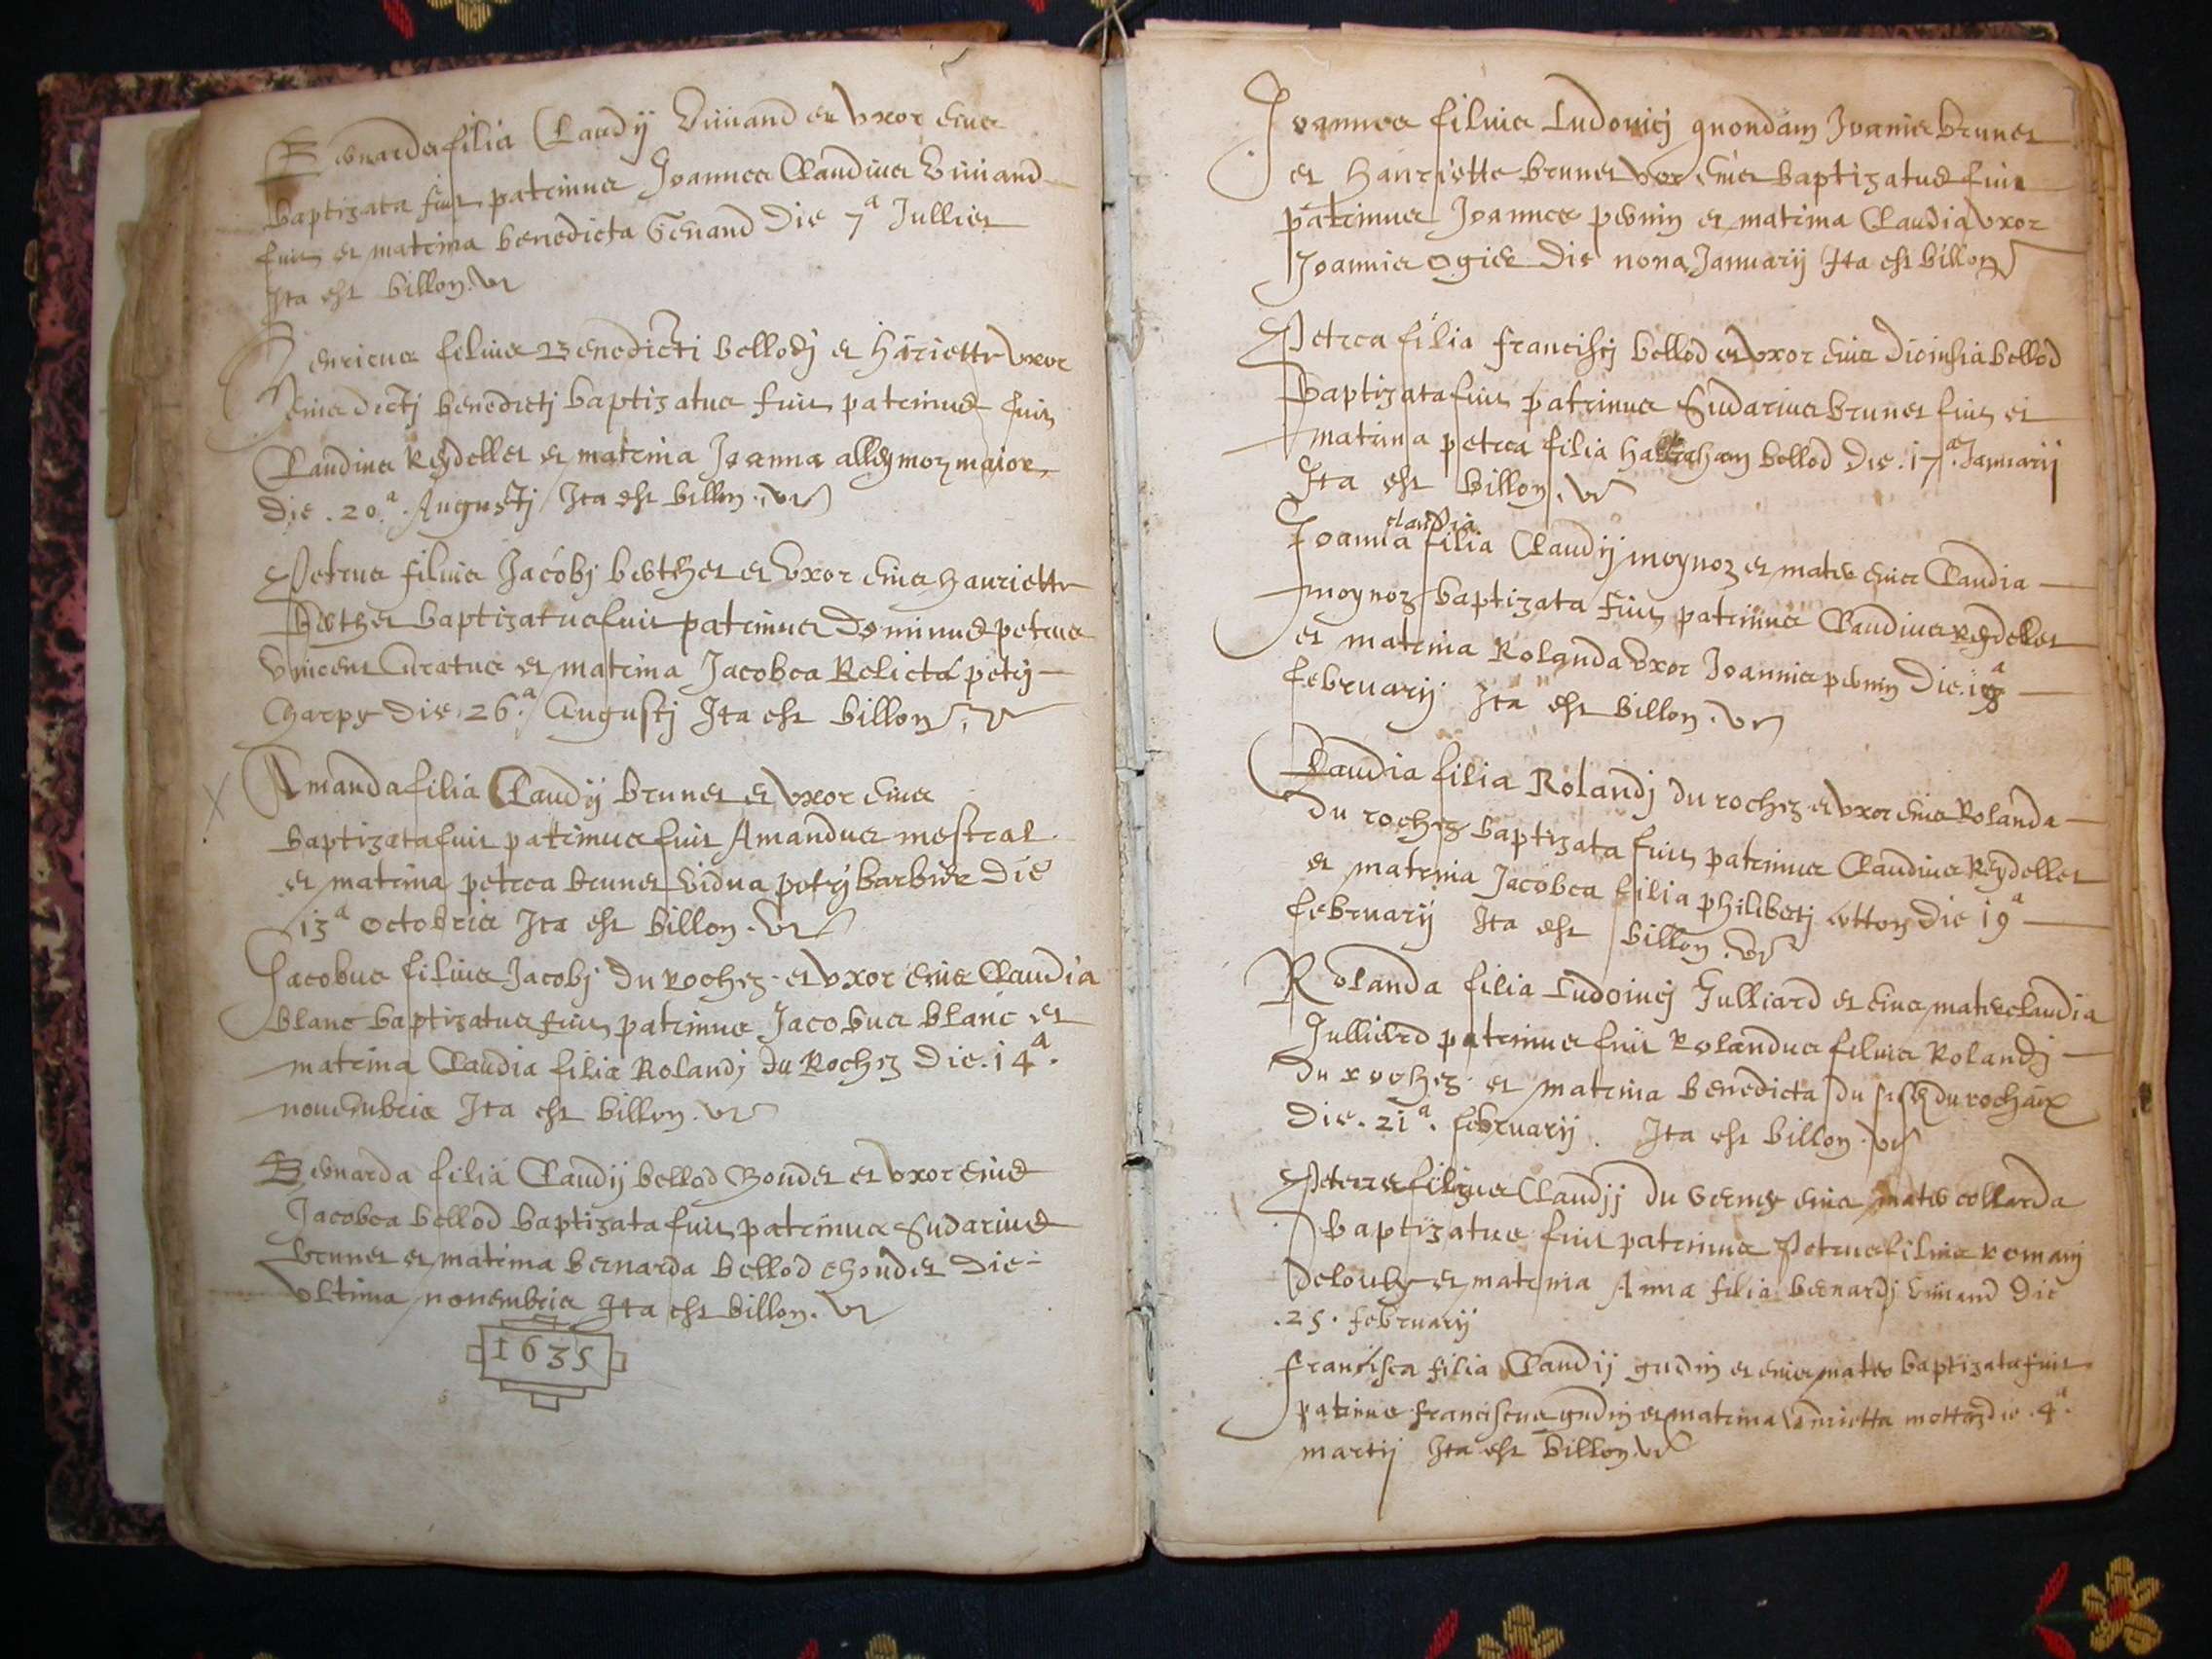 Bernarda filia Claudij Vuiuand et vxor eius
baptizata fuit patrinus Joannes Claudius Vuiuand
fuit et matrina benedicta Geuand die 7a Julliet
Ita est billon. vr
Henricus filius Benedicti bellodj et Hariette vxor
eius dictj benedictj baptizatus fuit patrinus fuit
Claudius Reydellet et matrina Joanna alleymoz maior
die .20.a Augustj Ita est billon. vr
Petrus filius Jacobj berthet et vxor eius Hauriette
berthet baptizatus fuit patrinus Dominus petrus
vincent Curatus et matrina Jacobea Relicta petrj
Charpy die 26.a Augustj Ita est billon. vr
Amanda filia Claudij brunet et vxor eius
baptizata fuit patrinus fuit Amandus mestral
et matrina petrea brunet vidua petrj barbier die
13a octobris Ita est billon. vr
Jacobus filius Jacobj du rochez et vxor eius Claudia
blanc baptizatus fuit patrinus Jacobus blanc et
matrina Claudia filia Rolandj du Rochez die .14a.
nouembris Ita est billon. vr
Bernarda filia Claudij bellod Gondet et vxor eius
Jacobea bellod baptizata fuit patrinus Sudarius
brunet et matrina bernarda bellod die
vltima nouembris Ita est billon. vr
1635
Joannes filius Ludouicj quondam Joanis brunet
et Hanriette brunet vxor eius baptizatus fuit
patrinus Joannes pernin et matrina Claudia vxor
Joannis ogier die nona Januarij Ita est billon
Petrea filia franciscj bellod et vxor eius bellod
baptizata fuit patrinus Sudarius brunet fuit et
matrina petrea filia bellod die .17.a Januarij
Ita est billon. vr
claudia
Joanna filia Claudij moynoz et mater eius Claudia
moynoz baptizata fuit patrinus Claudius Reydellet
et matrina Rolanda vxor Joannis pernin die
februarij Ita est billon. vr
Claudia filia Rolandj du rochez et vxor eius Rolanda
du rochez baptizata fuit patrinus Claudius Reydellet
et matrina Jacobea filia philibertj die 19a
februarij Ita est billon. vr
Rolanda filia Ludouicj Julliard et eius mater claudia
Julliard patrinus fuit Rolandus filius Rolandj
du rochez et matrina benedicta du
die .21a. februarij. Ita est billon. vr
filius Claudij du verney eius mater collarda
baptizatus fuit patrinus Petrus filius romanj
et matrina Anna filia bernardj vuiuand die
.25. februarij
francisca filia Claudij gudin et eius mater baptizata fuit
patrinus franciscus gudin et matrina die .4a.
martij Ita est billon. vr